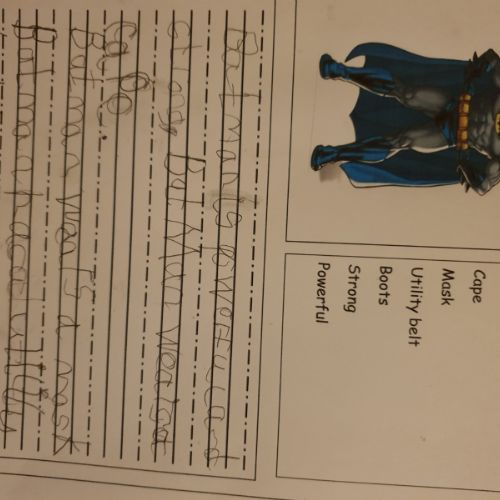 Cape
Mask
Utility belt
Boots
Strong
Powerful
Batman is powerful and
strong Bat Man wears a
cape.
Batman wears a mask
Batman had a utility